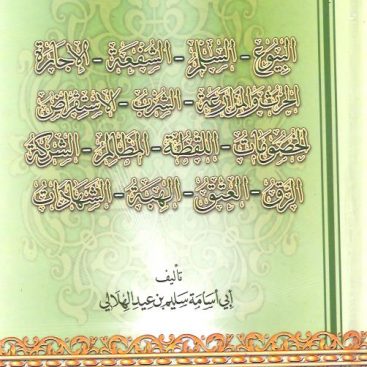 البيوع - السلم - الشفعة - الإجارة
الحرث والمزارعة - الشرب - الاستقراض
الخصومات - اللقطة - المظالم - الشركة
الرهن - العتق - الهبة - الشهادات
تأليف
أبي أسامة سليم بن عيد الهلالي